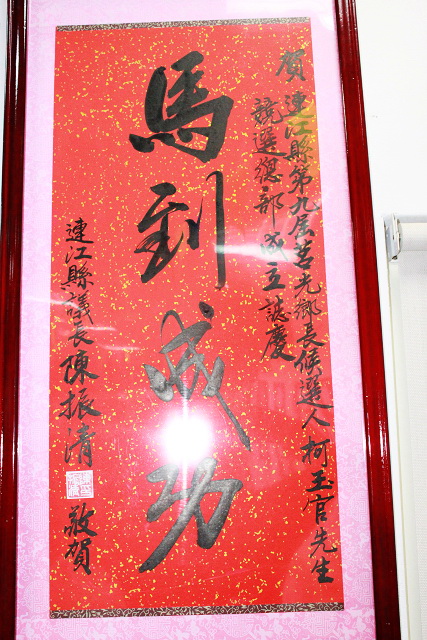 賀
連江縣第九屆莒光鄉長候選人柯玉官先生
競選總部成立誌慶
馬到成功
連江縣議長陳振清
敬賀